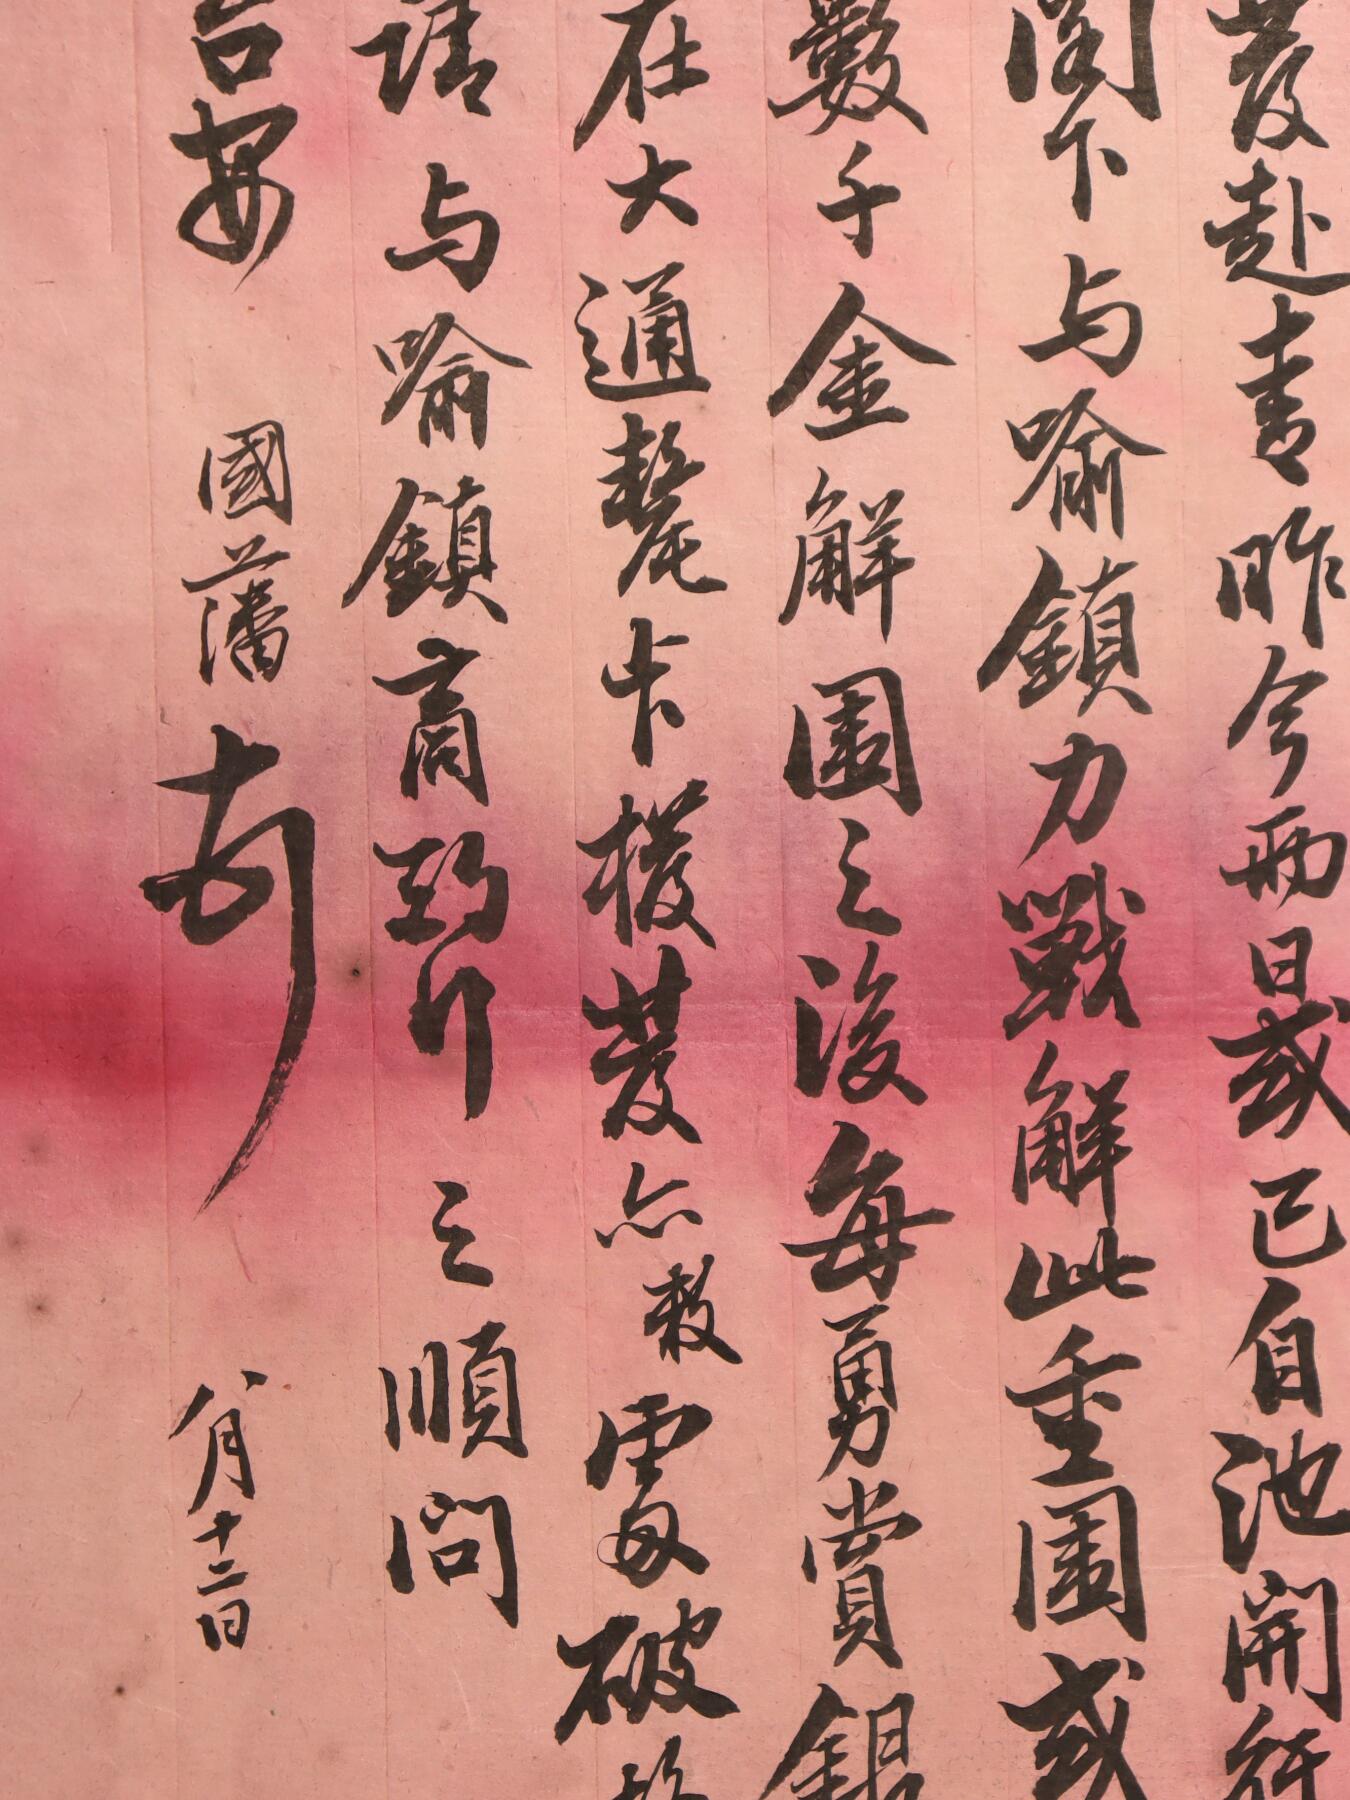 發赴青昨今兩日或已自池開行
閣下与喻鎮力戰解此重圍或
數千金解圍之後每勇賞銀
在大通釐卡撥發亦救電破
請与喻鎮商酌行之順問
台安 國藩 八月十二日